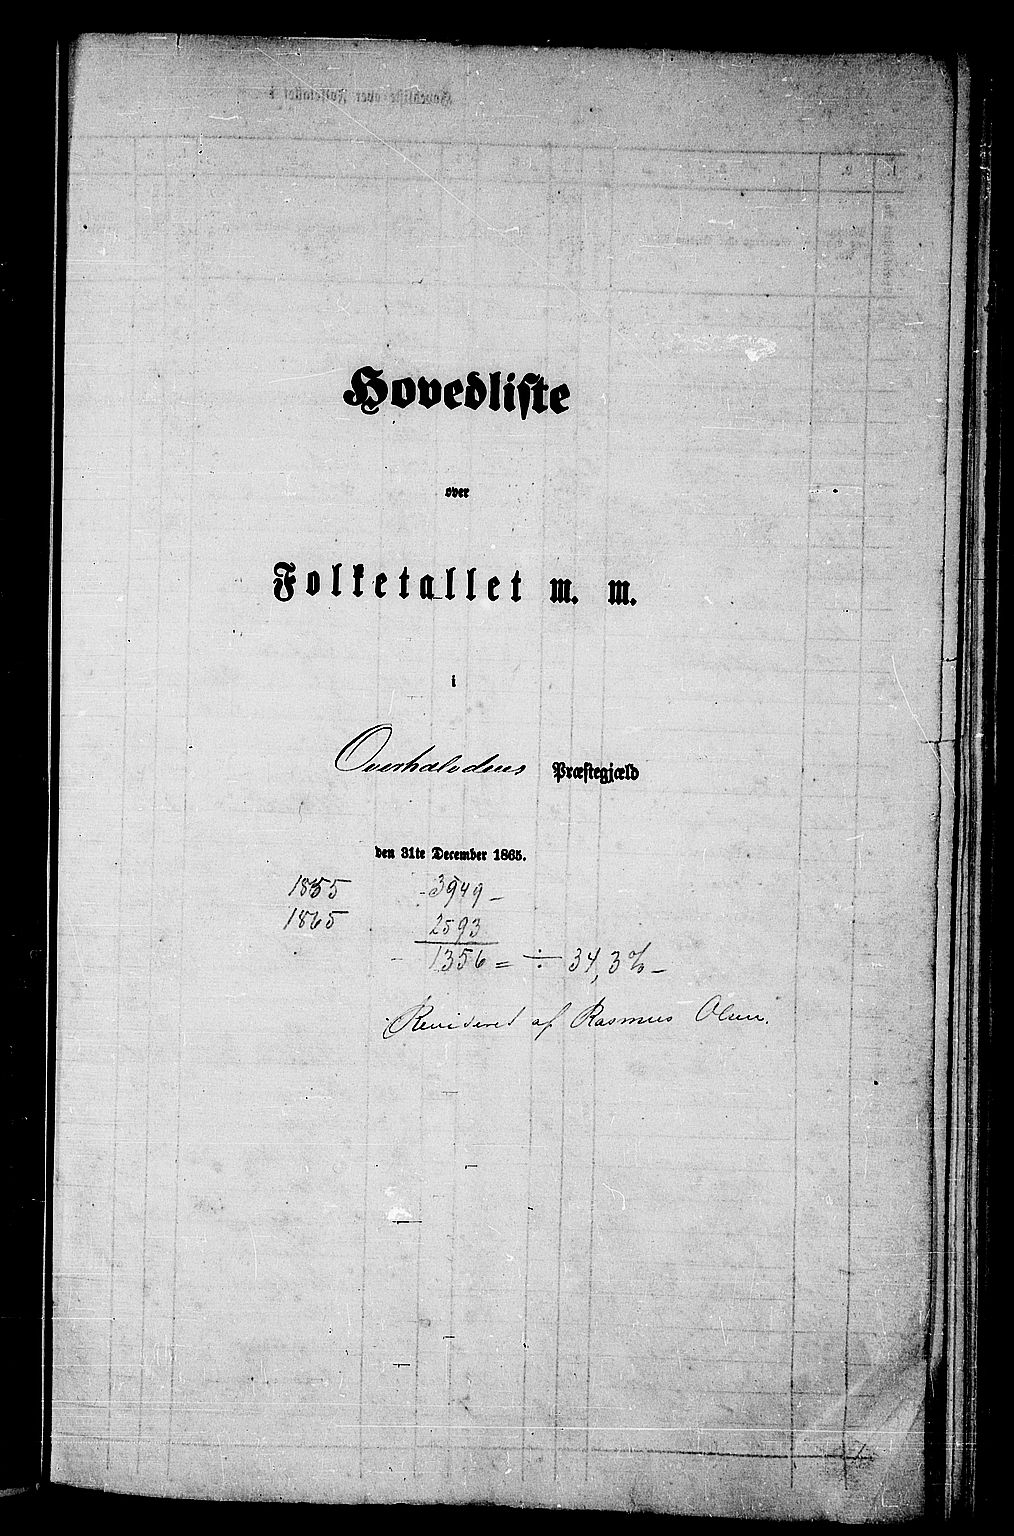 Hovedliste
over
Folketallet m. m.
i
Overhalvdens Præstegjæld
den 31te December 1865.
1855 3949 —
1865 2593
1356 = ÷ 34,3% —
Revideret af Rasmus Olsen.